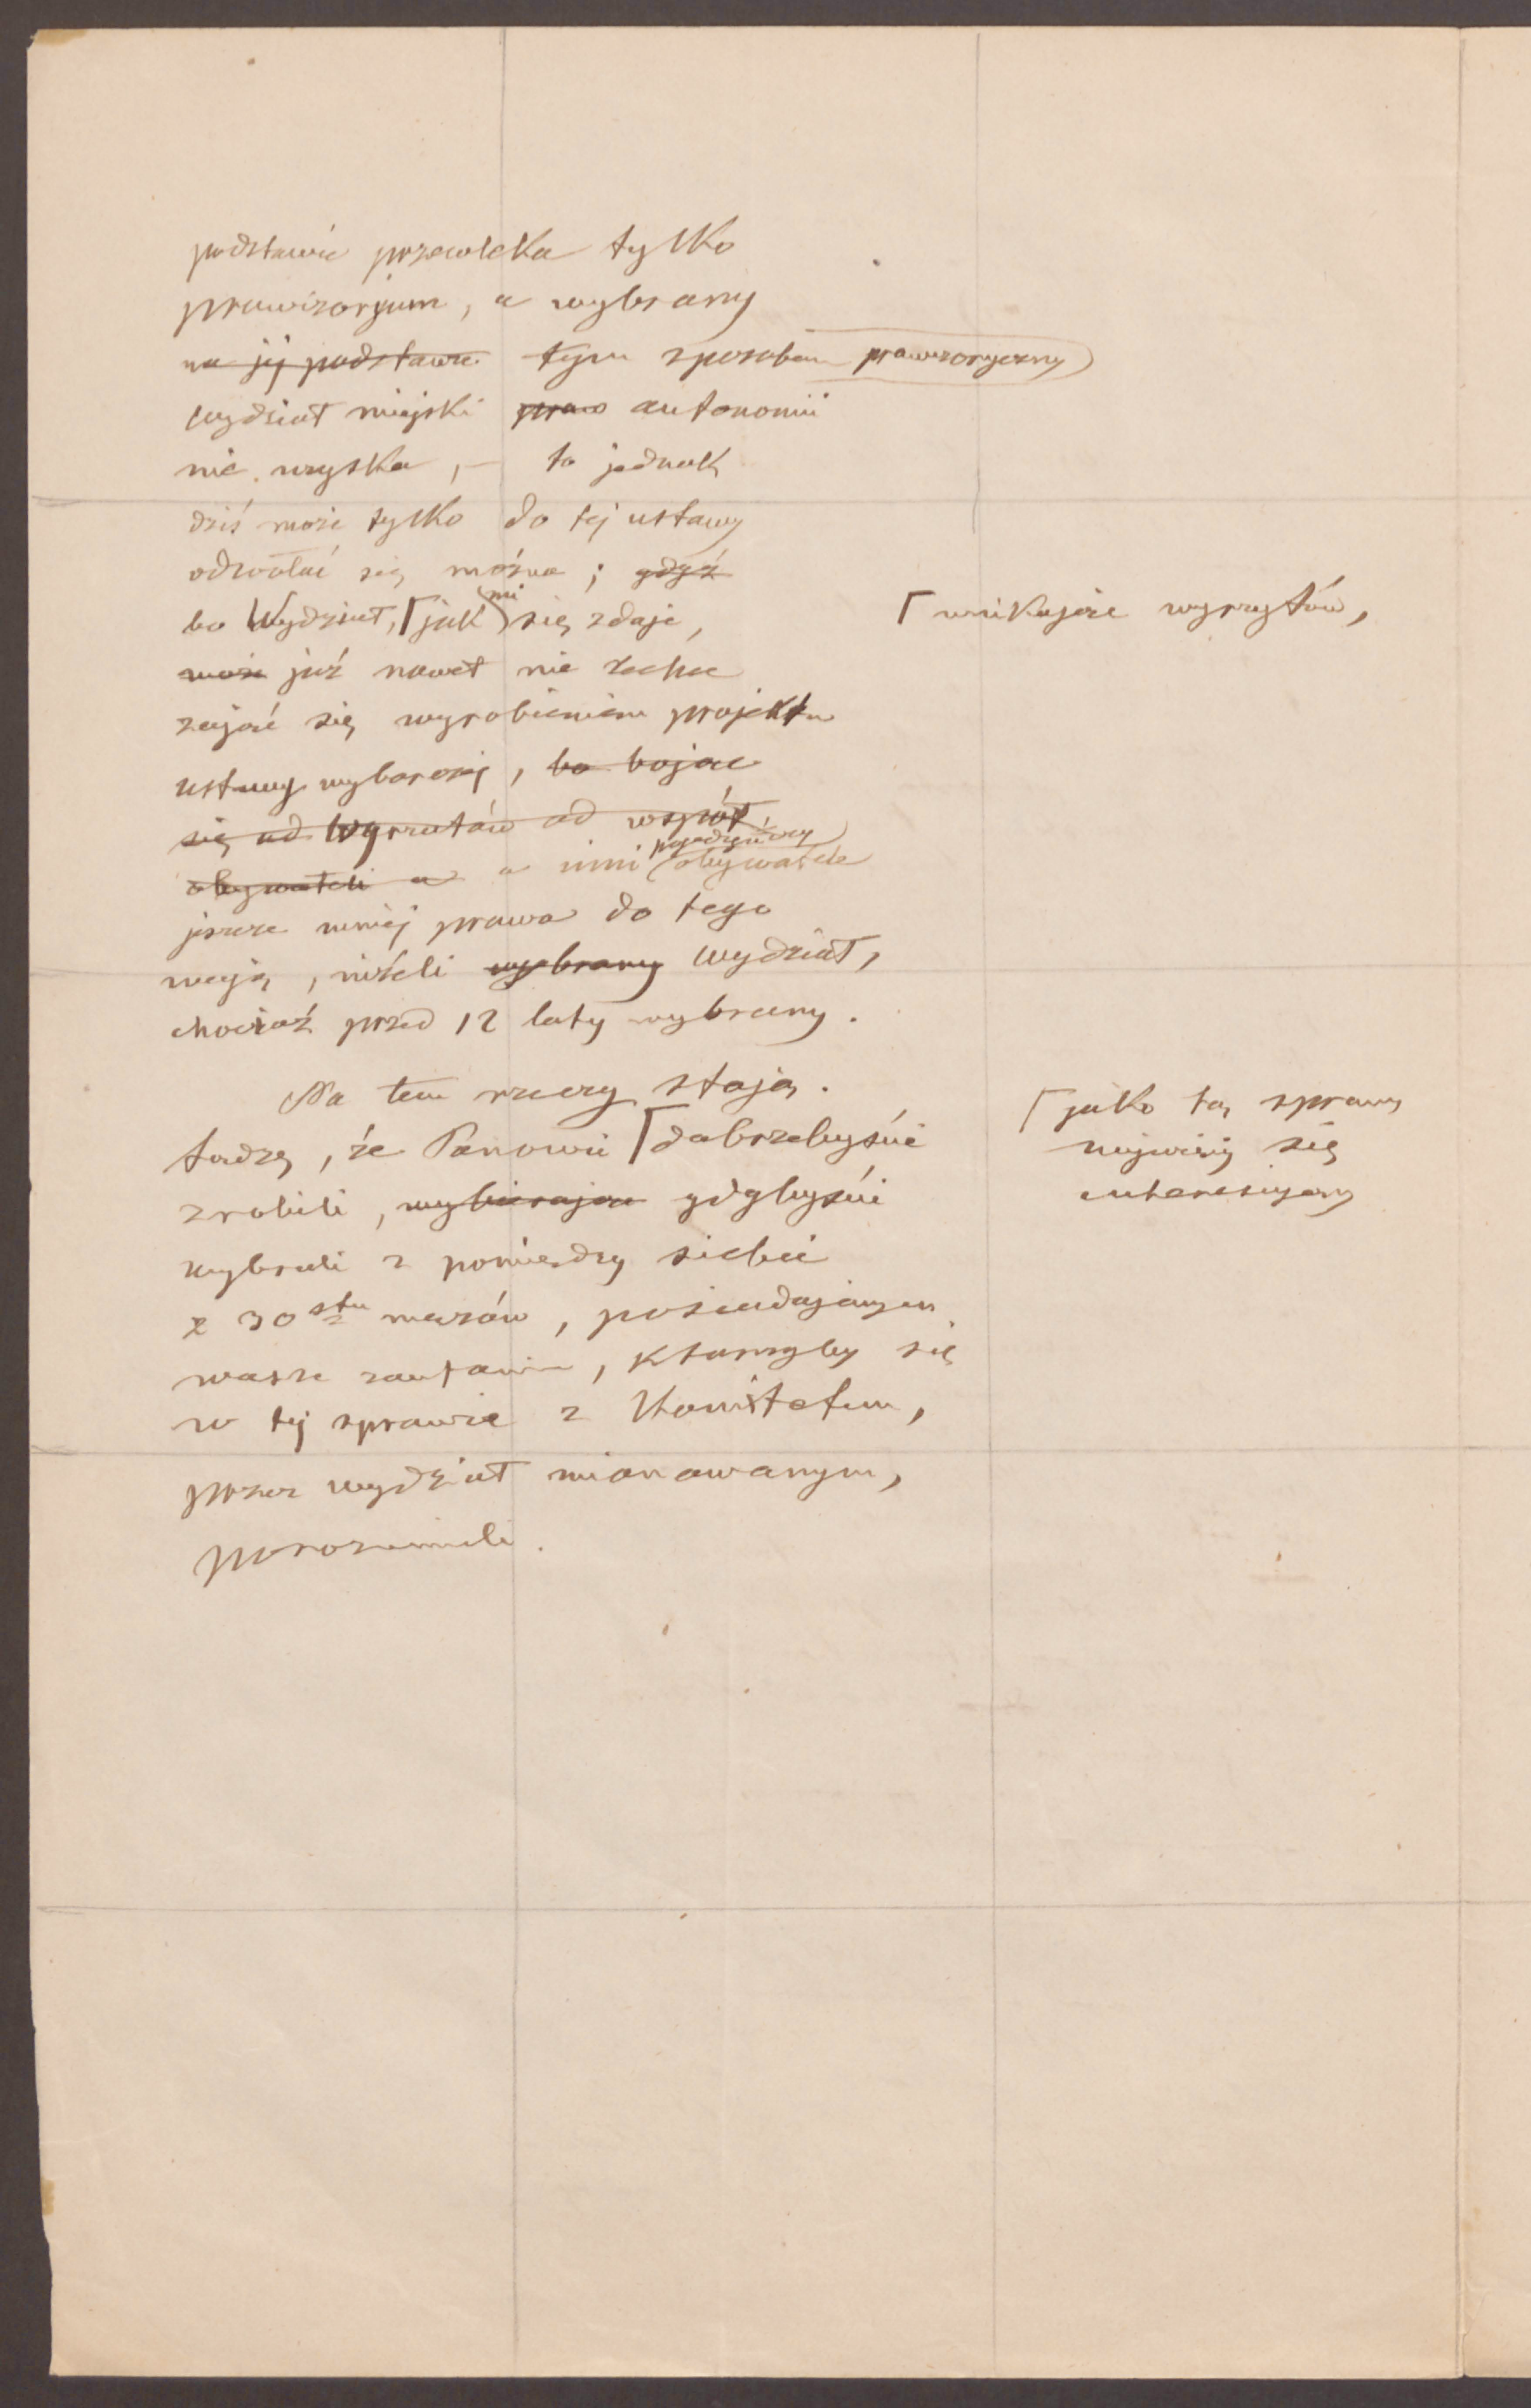 podstawie przewleka tylko
prowizorjum, a wybrany
na jej podstawie tym sposobem prowizoryczny
wydział miejski prawo autonomii
nie uzyska, — to jednak
dziś może tylko do tej ustawy
odwołać się można; gdyż
bo Wydział, ⌈jak mi się zdaje,
⌈unikając wyrzytów,
może już nawet nie zechce
zająć się wyrobieniem projektu
ustawy wyborczej, bo bojąc
się od wyrzutów od współ
obywateli a a inni pojedyńczy obywatele
jeszcze mniej prawa do tego
mają, niżeli wybrany Wydział,
chociaż przed 12 laty wybrany.
Na tem rzeczy stają.
⌈jako tą sprawą
najwięcej się
interesujący
Sądzę, że Panowie ⌈dobrzebyście
zrobili, wybierając gdybyście
wybrali z pomiędzy siebie
z 30stu mężów, posiadających
wasze zaufanie, którzyby się
w tej sprawie z Komitetem,
przez wydział mianowanym,
porozumieli.